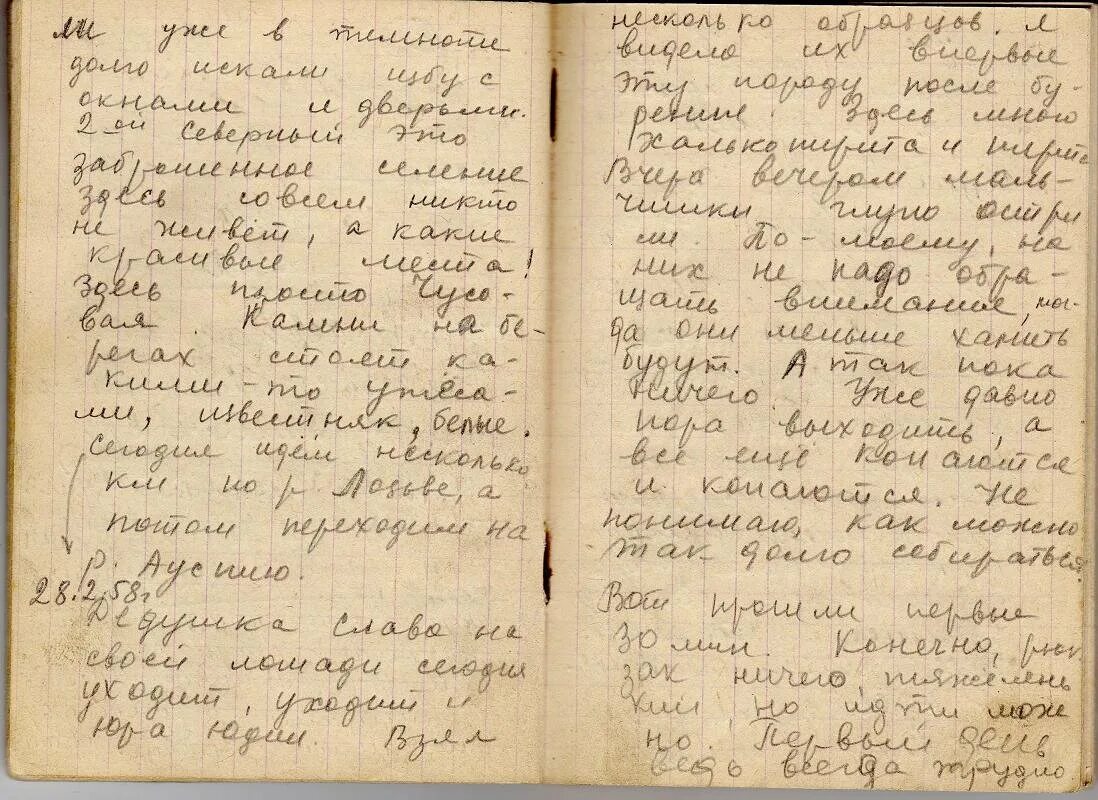 ли уже в темноте
долго искали избу с
окнами и дверьми.
2-ой Северный это
заброшенное селение
здесь совсем никто
не живёт, а какие
красивые места!
Здесь просто Чусо-
вая. Камни на бе-
регах стоят ка-
кими-то утёса-
ми, известняк, белые.
Сегодня идём несколько
км по р Лозьве, а
потом переходим на
р. Ауспию.
28.2.58г
Дедушка Слава на
своей лошади сегодня
уходит, уходит и
Юра Юдин. Взял
несколько образцов. Я
видела их впервые
эту породу после бу-
рения. Здесь много
халькопирита и пирита
Вчера вечером маль-
чишки глупо остри
ли. По-моему, на
них не надо обра-
щать внимание, мо-
да они меньше хамить
будут. А так пока
ничего. Уже давно
пора выходить, а
все ещё копаются
и копаются. Не
понимаю, как можно
так долго собираться.
Вот прошли первые
30 мин. Конечно, рюк
зак ничего, тяжелень
кий, но идти мож
но. Первый день
ведь всегда трудно